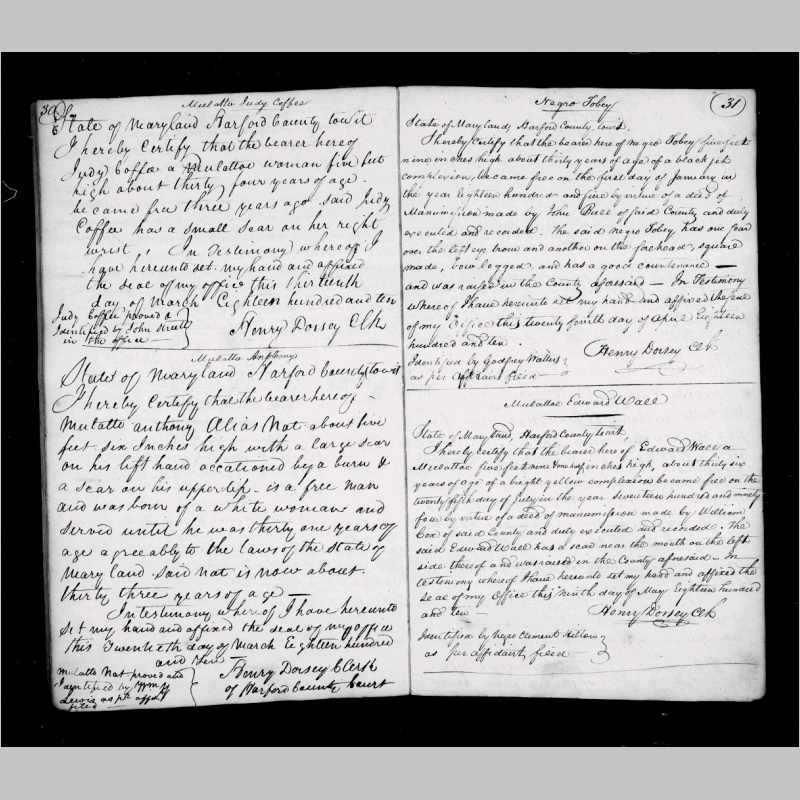 30
Mulatto Judy Coffee
State of Maryland Harford County to wit
I hereby Certify that the bearer hereof
Judy Coffee a Mulattoe woman five feet
high about thirty four years of age.
became free three years ago said Judy
Coffee has a small Scar on her right
wrist, In Testimony whereof I
have hereunto set my hand and affixed
the seal of my office this thirteenth
day of March Eighteen hundred and ten
Judy Coffee proved &
Identified by John
in the office
Henry Dorsey Clk
Mulatto Anthony
State of Maryland Harford County to wit
I hereby Certify that the bearer hereof
Mulatto Anthony Alias Nat about five
feet six Inches high with a large scar
on his left hand accationed by a burn &
a scar on his upper lip is a free man
and was bourn of a white woman and
served until he was thirty one years of
age agreeably to the laws of the State of
Maryland said Nat is now about
thirty three years of age
In testimony whereof I have hereunto
set my hand and affixed the seal of my office
this Twentieth day of March Eighteen hundred
and ten
Mulatto Nat proved and
Identified by
Lewis as pr affdt
filed
Henry Dorsey Clerk
of Harford County Court
31
Negro Tobey
State of Maryland, Harford County towit.
I hereby Certify that the bearer hereof Negro Tobey five feet
nine inches high about thirty years of age of a black jet
complexion, became free on the first day of January in
the year Eighteen hundred and five by virtue of a deed of
Manumission made by John Bull of said County and duly
executed and recorded. The said negro Tobey has one scar
over the left eye brow and another on the forehead, square
made, bow legged and has a good countenance
and was raised in the County aforesaid — In Testimony
whereof I have hereunto set my hand and affixed the seal
of my Office this twenty fourth day of April Eighteen
hundred and ten.
Identified by Godfrey Watters
as per affidavit filed
Henry Dorsey Clk
Mulattoe Edward Wall
State of Maryland, Harford County towit,
I hereby certify that the bearer hereof Edward Wall a
Mulattoe five feet nine inches high, about thirty six
years of age of a bright yellow complexion became free on the
twenty fifth day of July in the year Seventeen hundred and ninety
four by virtue of a deed of manumission made by William
Cox of said County and duly executed and recorded. The
said Edward Wall has a scar near the mouth on the left
side thereof and was raised in the County aforesaid. In
testimony whereof I have hereunto set my hand and affixed the
seal of my Office this Ninth day of May Eighteen hundred
and ten
Henry Dorsey Clk
Identified by Negro Clement
as per affidavit filed